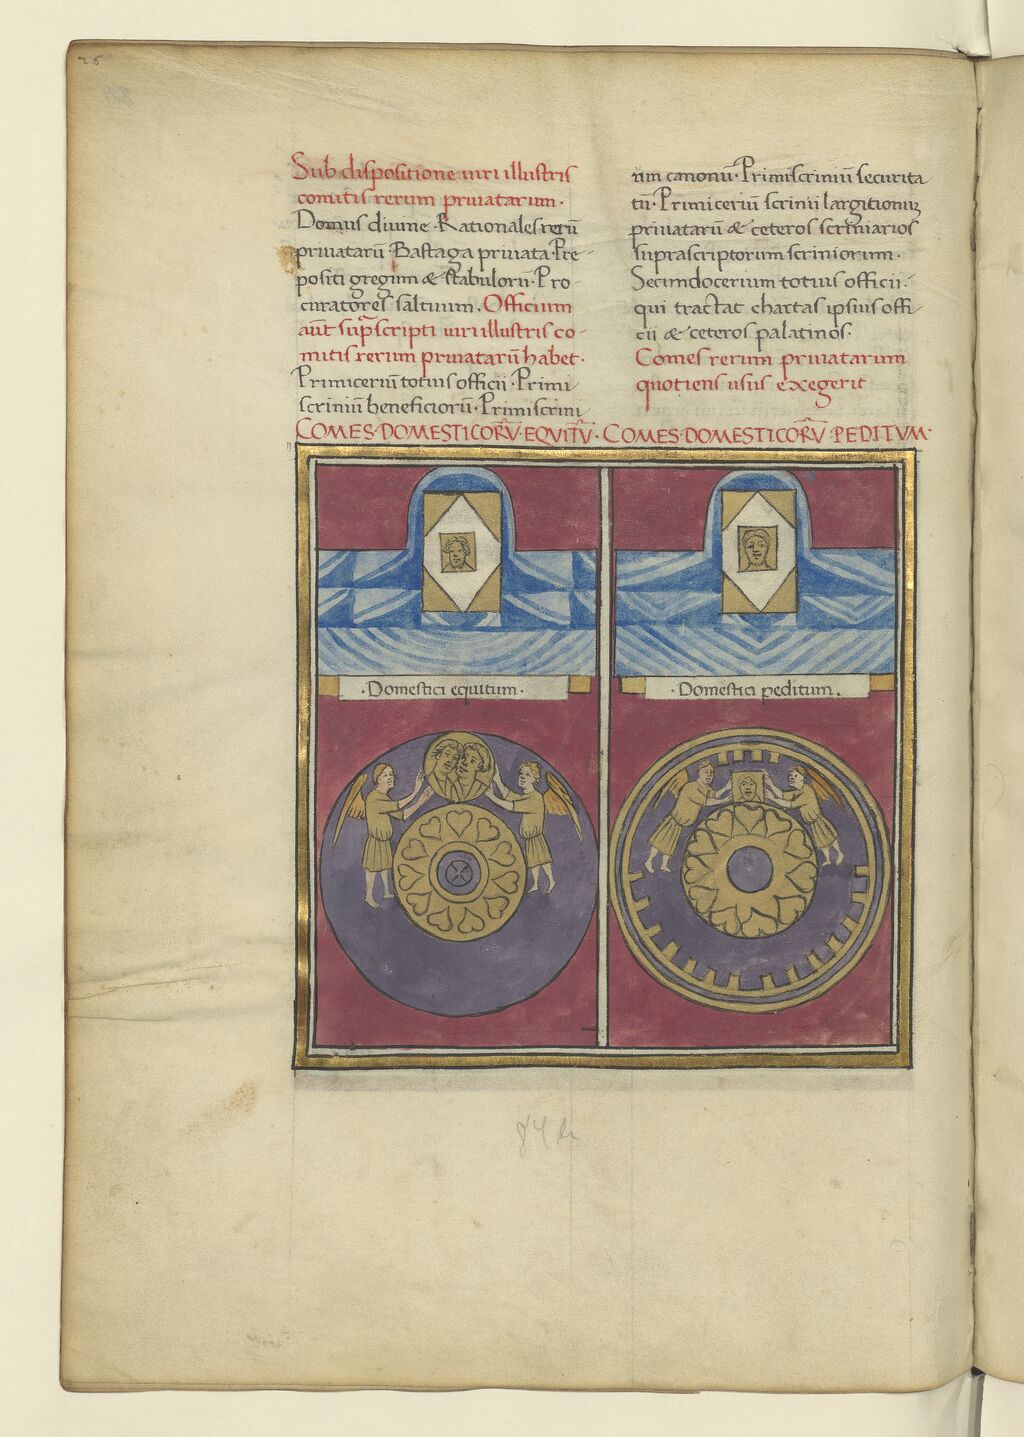 26
Sub dispositione uiri illustris
comitis rerum priuatarum·
Domus diuine·Rationales rerū
priuatarū·Bastaga priuata·Pre-
positi gregum & stabulorū·Pro-
curatores saltuum·Officium
aut̄ sup̄scripti uiri illustris co-
mitis rerum priuatarū habet·
Primiceriū totius officii·Primi-
scriniū beneficiorū·Primiscrini-
um canonū·Primiscriniū securita-
tū·Primiceriū scrinii largitionū
priuatarū & ceteros scriniarios
suprascriptorum scriniorum·
Secundocerium totius officii·
qui tractat chartas ipsius offi-
cii & ceteros palatinos·
Comes rerum priuatarum
quotiens usus exegerit
COMES·DOMESTICORV̄·EQVITV̄·COMES·DOMESTICORV̄·PEDITVM·
·Domestici equitum·
·Domestici peditum·